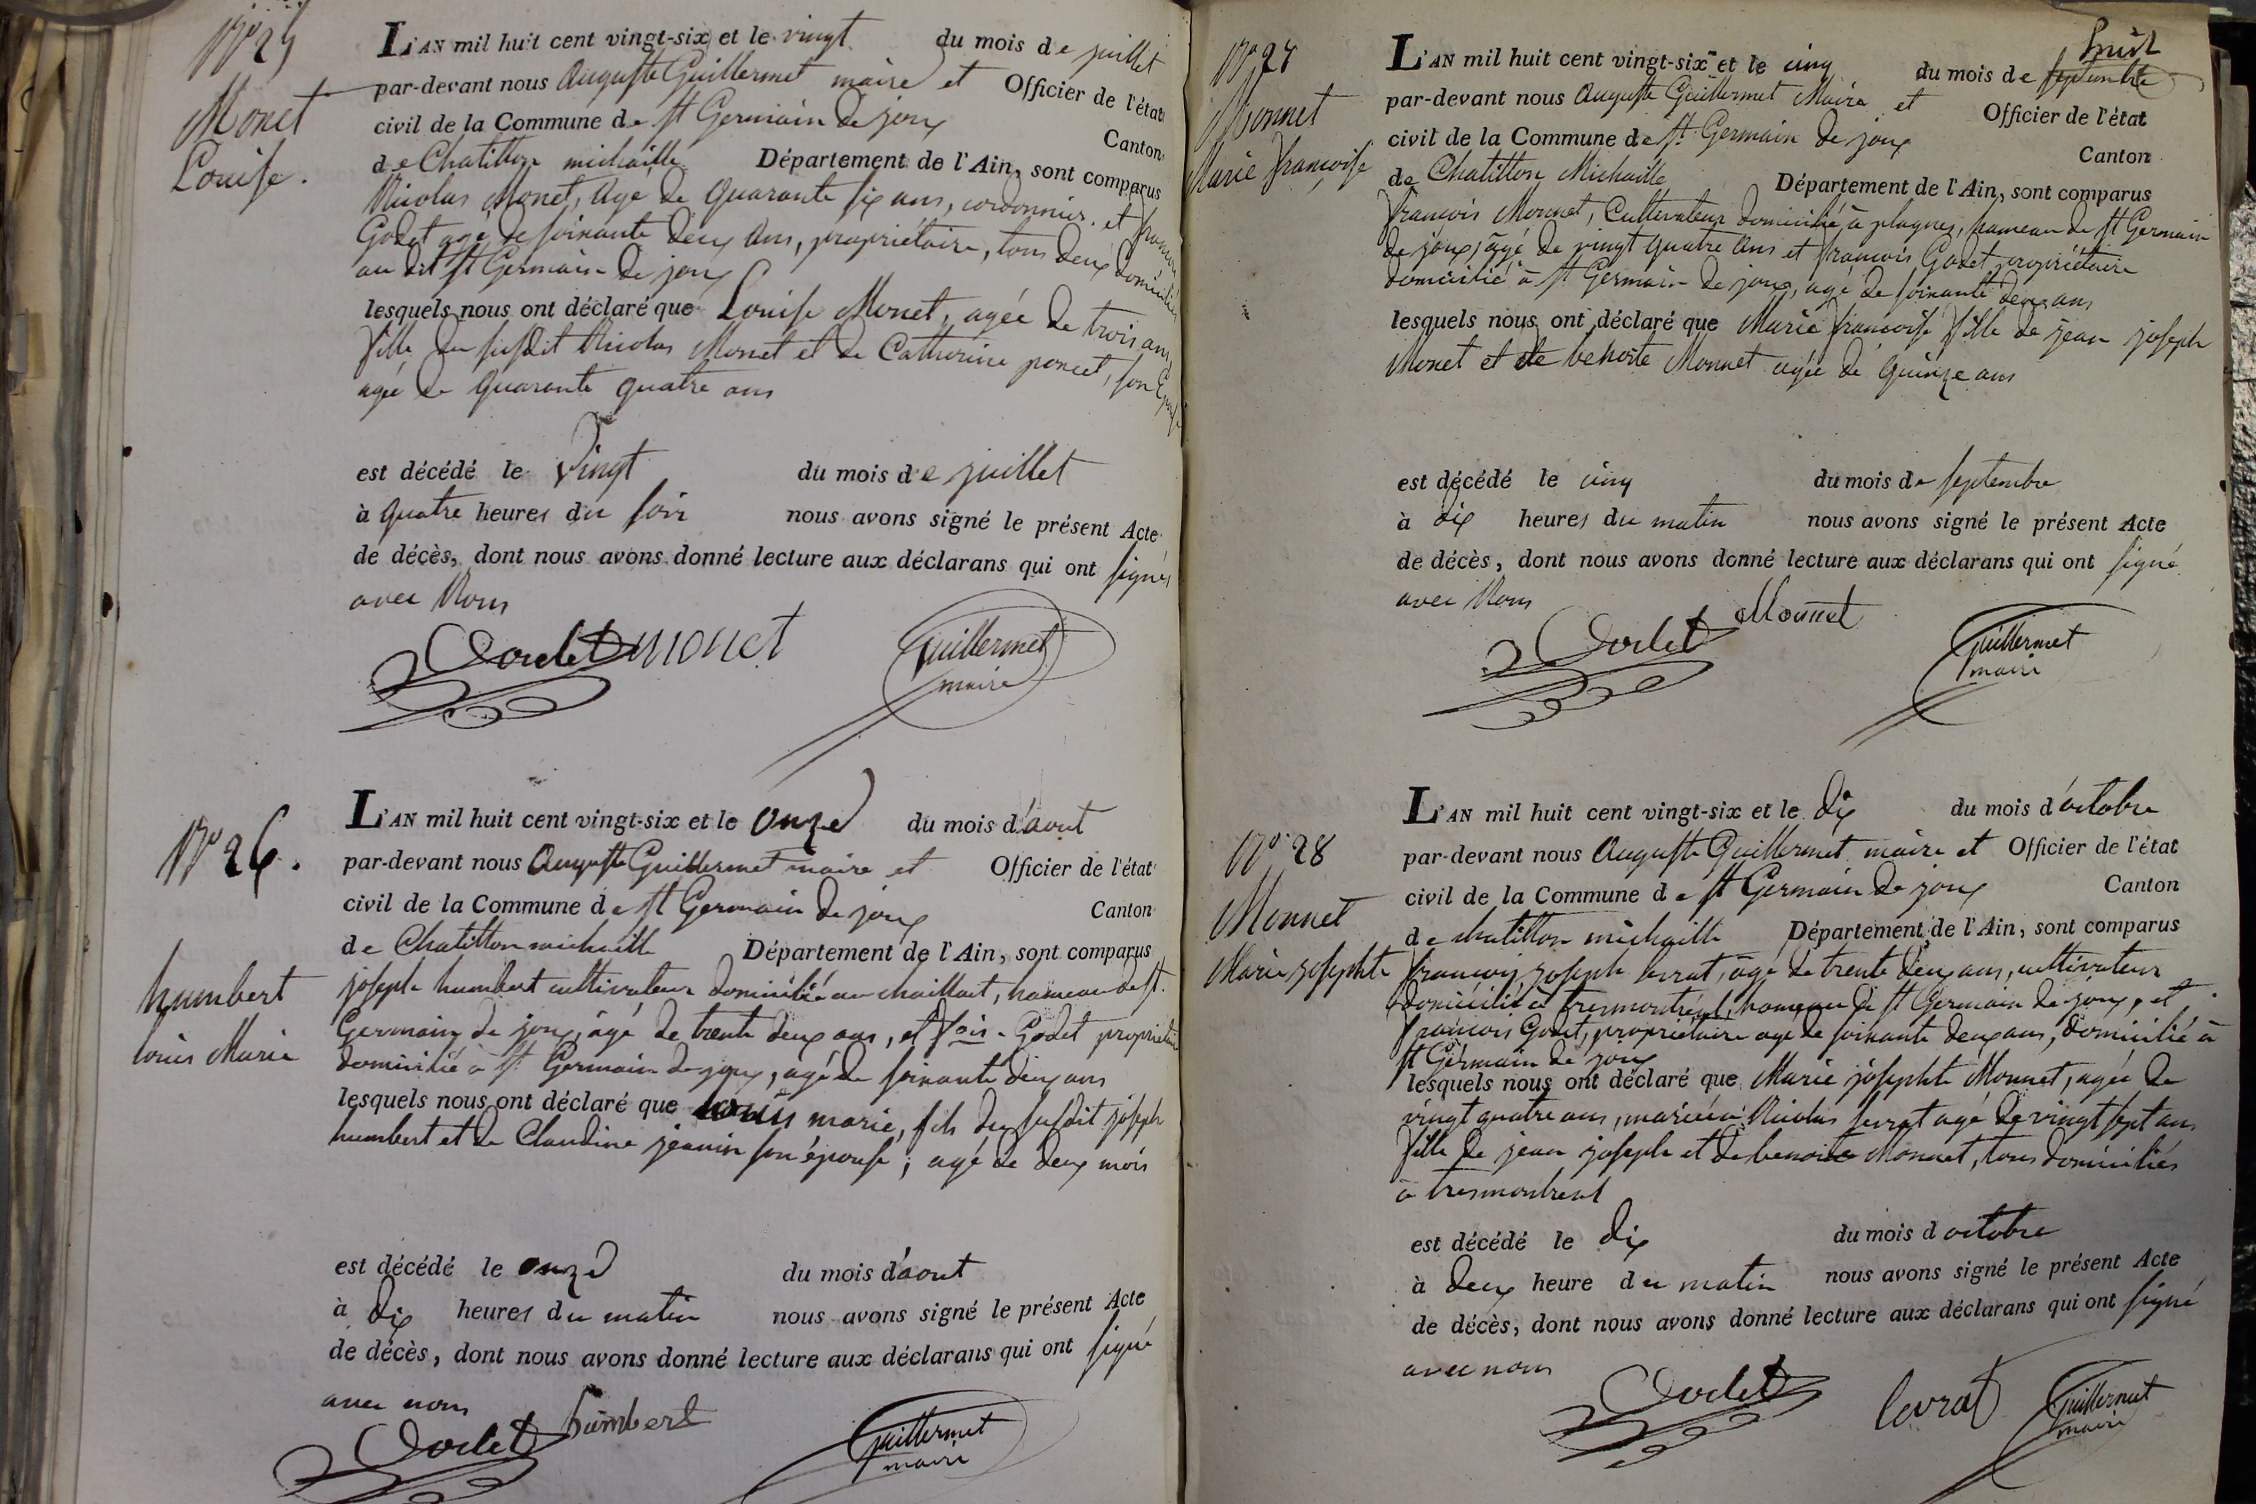 N° 25
Monet
Louise.
L'AN mil huit cent vingt-six et le vingt du mois de juillet
par-devant nous Auguste Guillermet maire et Officier de l'état
civil de la Commune de St Germain de joux Canton
de Chatillon michaille Département de l'Ain, sont comparus
Nicolas Monet, agé de quarante six ans, cordonnier, et françois
Godet agé de soixante deux ans, propriétaire, tous deux domiciliés
au dit St Germain de joux
lesquels nous ont déclaré que Louise Monet, agée de trois ans
fille du susdit Nicolas Monet et de Catherine poncet, son Epouse
agée de quarante quatre ans
est décédé le vingt du mois de juillet
à quatre heures du soir nous avons signé le présent Acte
de décès, dont nous avons donné lecture aux déclarans qui ont signés
avec Nous
Godet monet Guillermet
maire
N° 26.
humbert
louis Marie
L'AN mil huit cent vingt-six et le onze du mois d'aout
par-devant nous Auguste Guillermet maire et Officier de l'état
civil de la Commune de St Germain de joux Canton
de Chatillon michaille Département de l'Ain, sont comparus
joseph humbert cultivateur domicilié au chaillout, hameau de St.
Germain de joux, âgé de trente deux ans, et fois. Godet propriétaire
domicilié à St Germain de joux, agé de soixante deux ans
lesquels nous ont déclaré que louis marie, fils du susdit joseph
humbert et de Claudine jeannin son épouse; agé de deux mois
est décédé le onze du mois d'aout
à dix heures du matin nous avons signé le présent Acte
de décès, dont nous avons donné lecture aux déclarans qui ont signé
avec nous
Godet humbert Guillermet
maire
N° 27
Monnet
Marie françoise
huit
L'AN mil huit cent vingt-six et le cinq du mois de septembre
par-devant nous Auguste Guillermet Maire et Officier de l'état
civil de la Commune de St. Germain de joux Canton
de Chatillon Michaille Département de l'Ain, sont comparus
françois Monnet, Cultivateur domicilié à plagnes, hameau de St Germain
de joux, âgé de vingt quatre ans et françois Godet propriétaire
domicilié à St Germain de joux, agé de soixante deux ans
lesquels nous ont déclaré que Marie françoise fille de jean joseph
Monet et de benoite Monnet agée de quinze ans
est décédé le cinq du mois de septembre
à dix heures du matin nous avons signé le présent Acte
de décès, dont nous avons donné lecture aux déclarans qui ont signé
avec Nous
Godet Monnet Guillermet
maire
N° 28
Monnet
Marie josephte
L'AN mil huit cent vingt-six et le dix du mois d'octobre
par-devant nous Auguste Guillermet maire et Officier de l'état
civil de la Commune de St Germain de joux Canton
de chatillon michaille Département de l'Ain, sont comparus
françois joseph levrat, âgé de trente deux ans, cultivateur
domicilié à tresmontreal, hameau de St Germain de joux, et
francois Godet, propriétaire agé de soixante deux ans, domicilié à
St Germain de joux
lesquels nous ont déclaré que Marie josephte Monnet, agée de
vingt quatre ans, mariée à Nicolas levrat agé de vingt sept ans
fille de jean joseph et de benoite Monnet, tous domiciliés
à tresmontreal
est décédé le dix du mois d octobre
à deux heure du matin nous avons signé le présent Acte
de décès, dont nous avons donné lecture aux déclarans qui ont signé
avec nous
Godet levrat Guillermet
maire